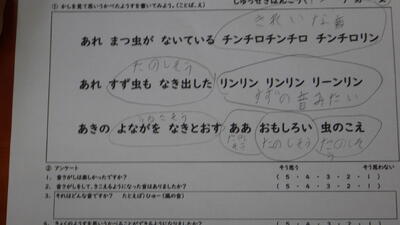 ① かしを見て思いうかべたようすを書いてみよう。(ことば、え)
きれいな音
あれ まつ虫が ないている チンチロチンチロ チンチロリン
たのしそう
あれ すず虫も なき出した リンリン リンリン リーンリン
すずの音みたい
あきの よながを なきとおす ああ おもしろい 虫のこえ
たのしそう たのしそう
② アンケート そう思う そう思わない
1、音さがしは楽しかったですか? (5・4・3・2・1)
2、音さがしをして、きこえるようになった音はありましたか? (5・4・3・2・1)
3、それはどんな音ですか? たとえば)ひゅー(風の音)